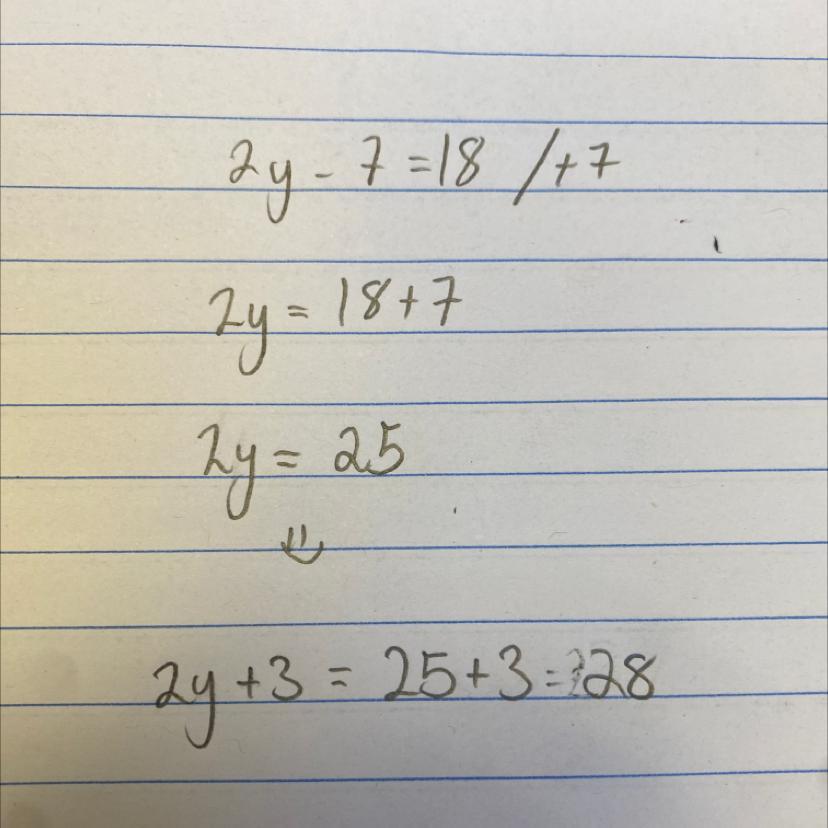 2y - 7 = 18 /+7
2y = 18+7
2y = 25
⇓
2y+3 = 25+3 = 28